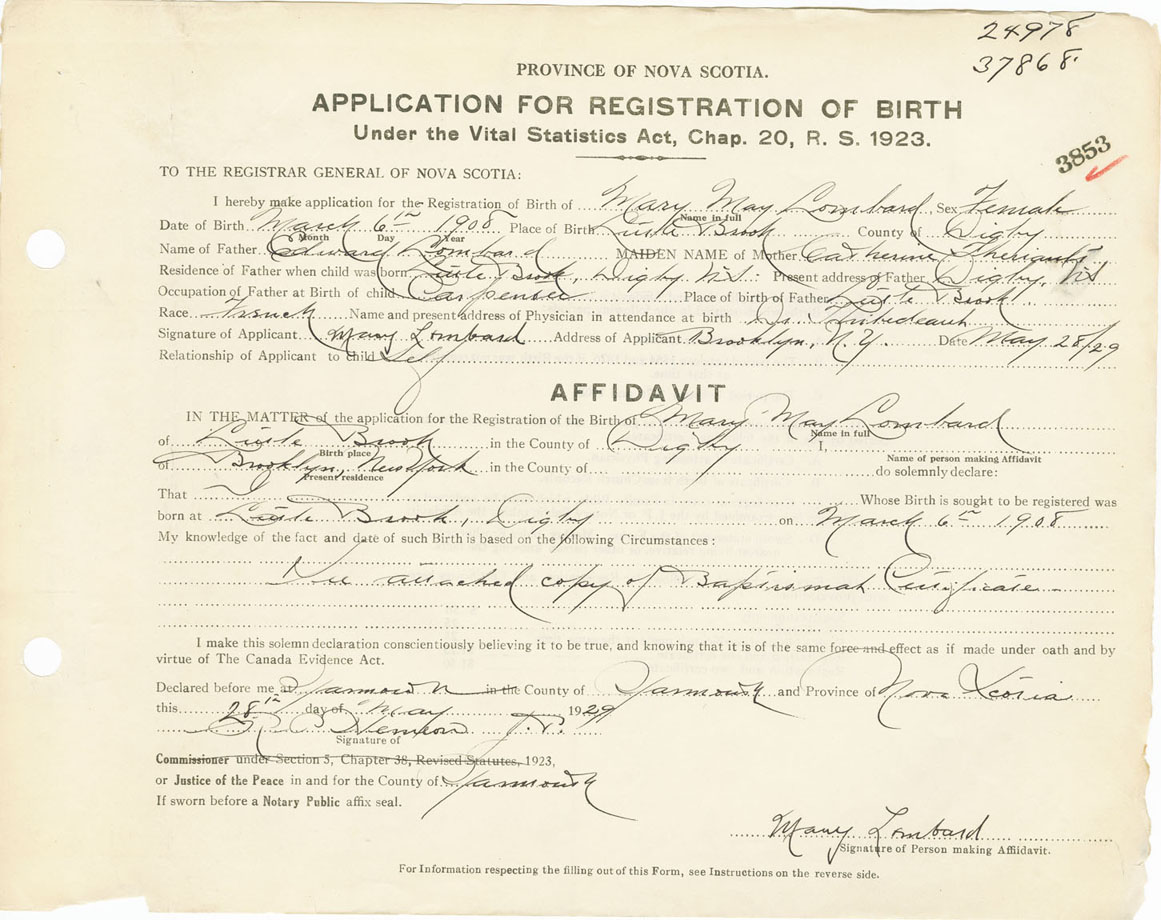 24978
37868.
PROVINCE OF NOVA SCOTIA.
APPLICATION FOR REGISTRATION OF BIRTH
Under the Vital Statistics Act, Chap. 20, R. S. 1923.
3853
TO THE REGISTRAR GENERAL OF NOVA SCOTIA:
I hereby make application for the Registration of Birth of Mary May Lombard Sex Female
Name in full
Date of Birth March 6th 1908 Place of Birth Little Brook County of Digby
Month Day Year
Name of Father Edward Lombard MAIDEN NAME of Mother Catherine
Residence of Father when child was born Little Brook, Digby N.S. Present address of Father Digby, N.S
Occupation of Father at Birth of child Carpenter Place of birth of Father Little Brook
Race French Name and present address of Physician in attendance at birth Dr.
Signature of Applicant Mary Lombard Address of Applicant Brooklyn, N.Y. Date May 28/29
Relationship of Applicant to child Self
AFFIDAVIT
IN THE MATTER of the application for the Registration of the Birth of Mary May Lombard
Name in full
of Little Brook in the County of Digby I,
Birth place Name of person making Affidavit
of Brooklyn, New York in the County of do solemnly declare:
Present residence
That I Whose Birth is sought to be registered was
born at Little Brook, Digby on March 6th 1908
My knowledge of the fact and date of such Birth is based on the following Circumstances:
See attached copy of Baptismal Certificate
I make this solemn declaration conscientiously believing it to be true, and knowing that it is of the same force and effect as if made under oath and by
virtue of The Canada Evidence Act.
Declared before me at Yarmouth in the County of Yarmouth and Province of Nova Scotia
this 28th day of May 1929
J.P.
Signature of
Commissioner under Section 5, Chapter 38, Revised Statutes, 1923,
or Justice of the Peace in and for the County of Yarmouth
If sworn before a Notary Public affix seal.
Mary Lombard
Signature of Person making Affidavit.
For Information respecting the filling out of this Form, see Instructions on the reverse side.